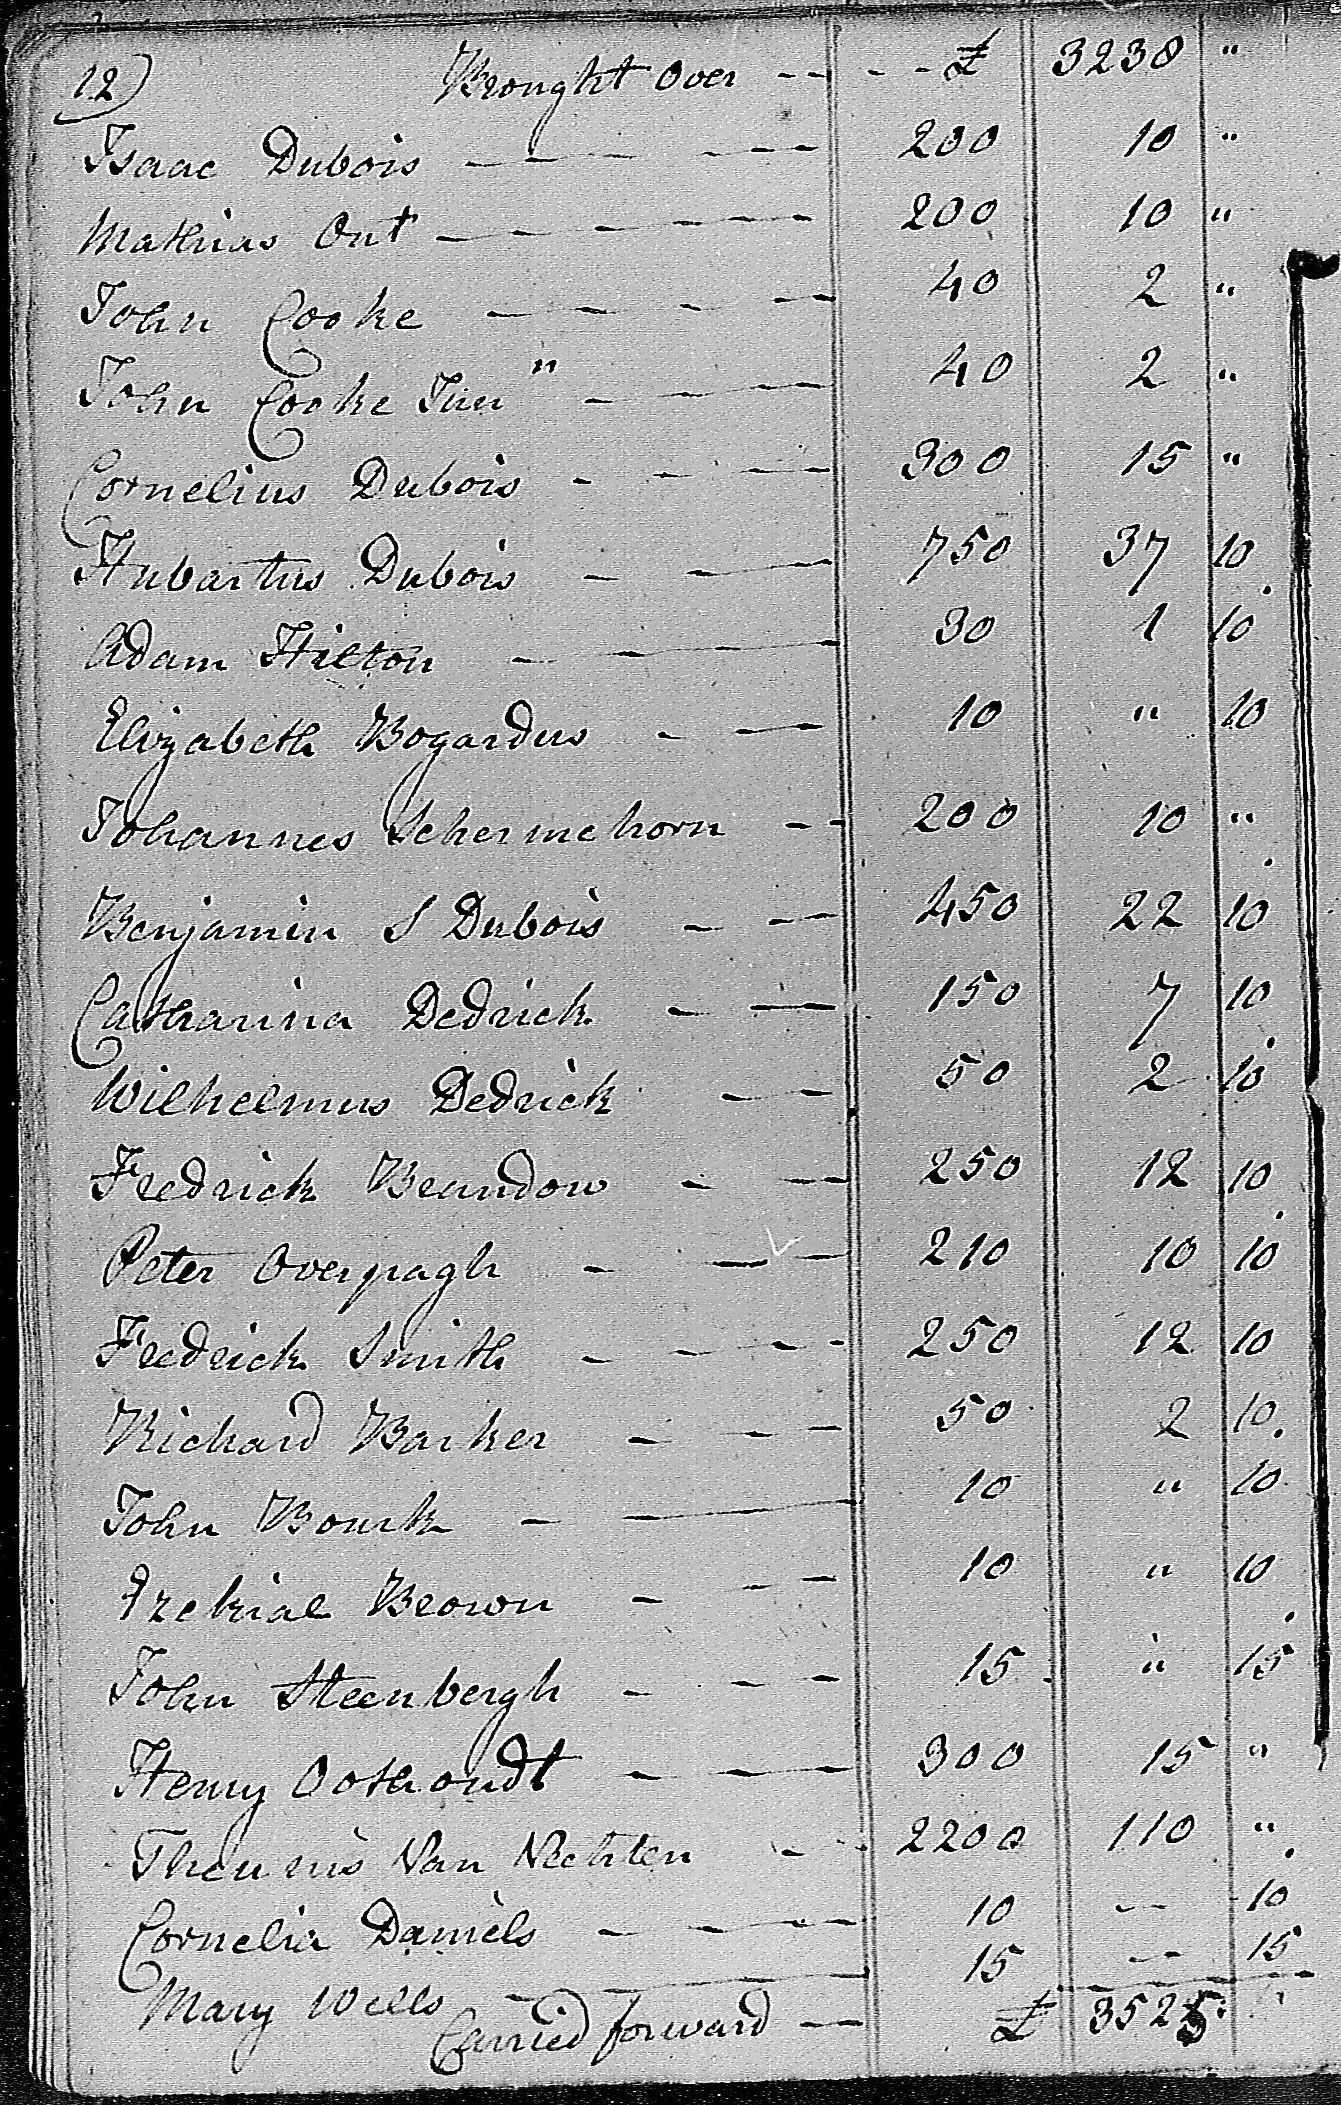 12) Brought Over £ 3238 "
Isaac Dubois 200 10 "
Mathias Out 200 10 "
John Cooke 40 2 "
John Cooke Jun" 40 2 "
Cornelius Dubois 300 15 "
Hubartus Dubois 750 37 10
Adam Hilton 30 1 10
Elizabeth Bogardus 10 " 10
Johannes Schermehorn 200 10 "
Benjamin S Dubois 450 22 10
Catharina Dedrick 150 7 10
Wilhelmus Dedrick 50 2 10
Fredrick Brandow 250 12 10
Peter Overpagh 210 10 10
Fredrick Smith 250 12 10
Richard Barker 50 2 10
John Bourk 10 " 10
Ezekial Brown 10 " 10
John Steenbergh 15 " 15
Henry Oothoudt 300 15 "
Theunis Van Vechten 2200 110 "
Cornelia Daniels 10 - 10
Mary Wells 15 - 15
Carried forward £ 3525